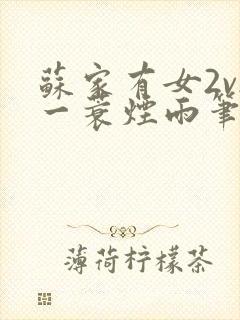 蘇家有女2v
一蓑煙雨筆
薄荷柠檬茶